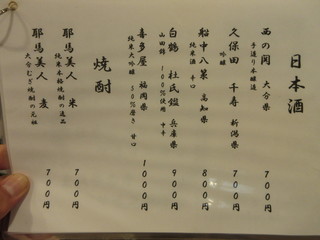 日本酒
西の関 大分県 700円
手造り本醸造
久保田 千寿 新潟県 700円
吟醸
船中八策 高知県 800円
純米酒 辛口
白鶴 杜氏鑑 兵庫県 900円
山田錦100%使用 中辛
喜多屋 福岡県 1000円
純米大吟醸 50%磨き 甘口
焼酎
耶馬美人 米 700円
純米本格焼酎の逸品
耶馬美人 麦 700円
大分むぎ焼酎の元祖